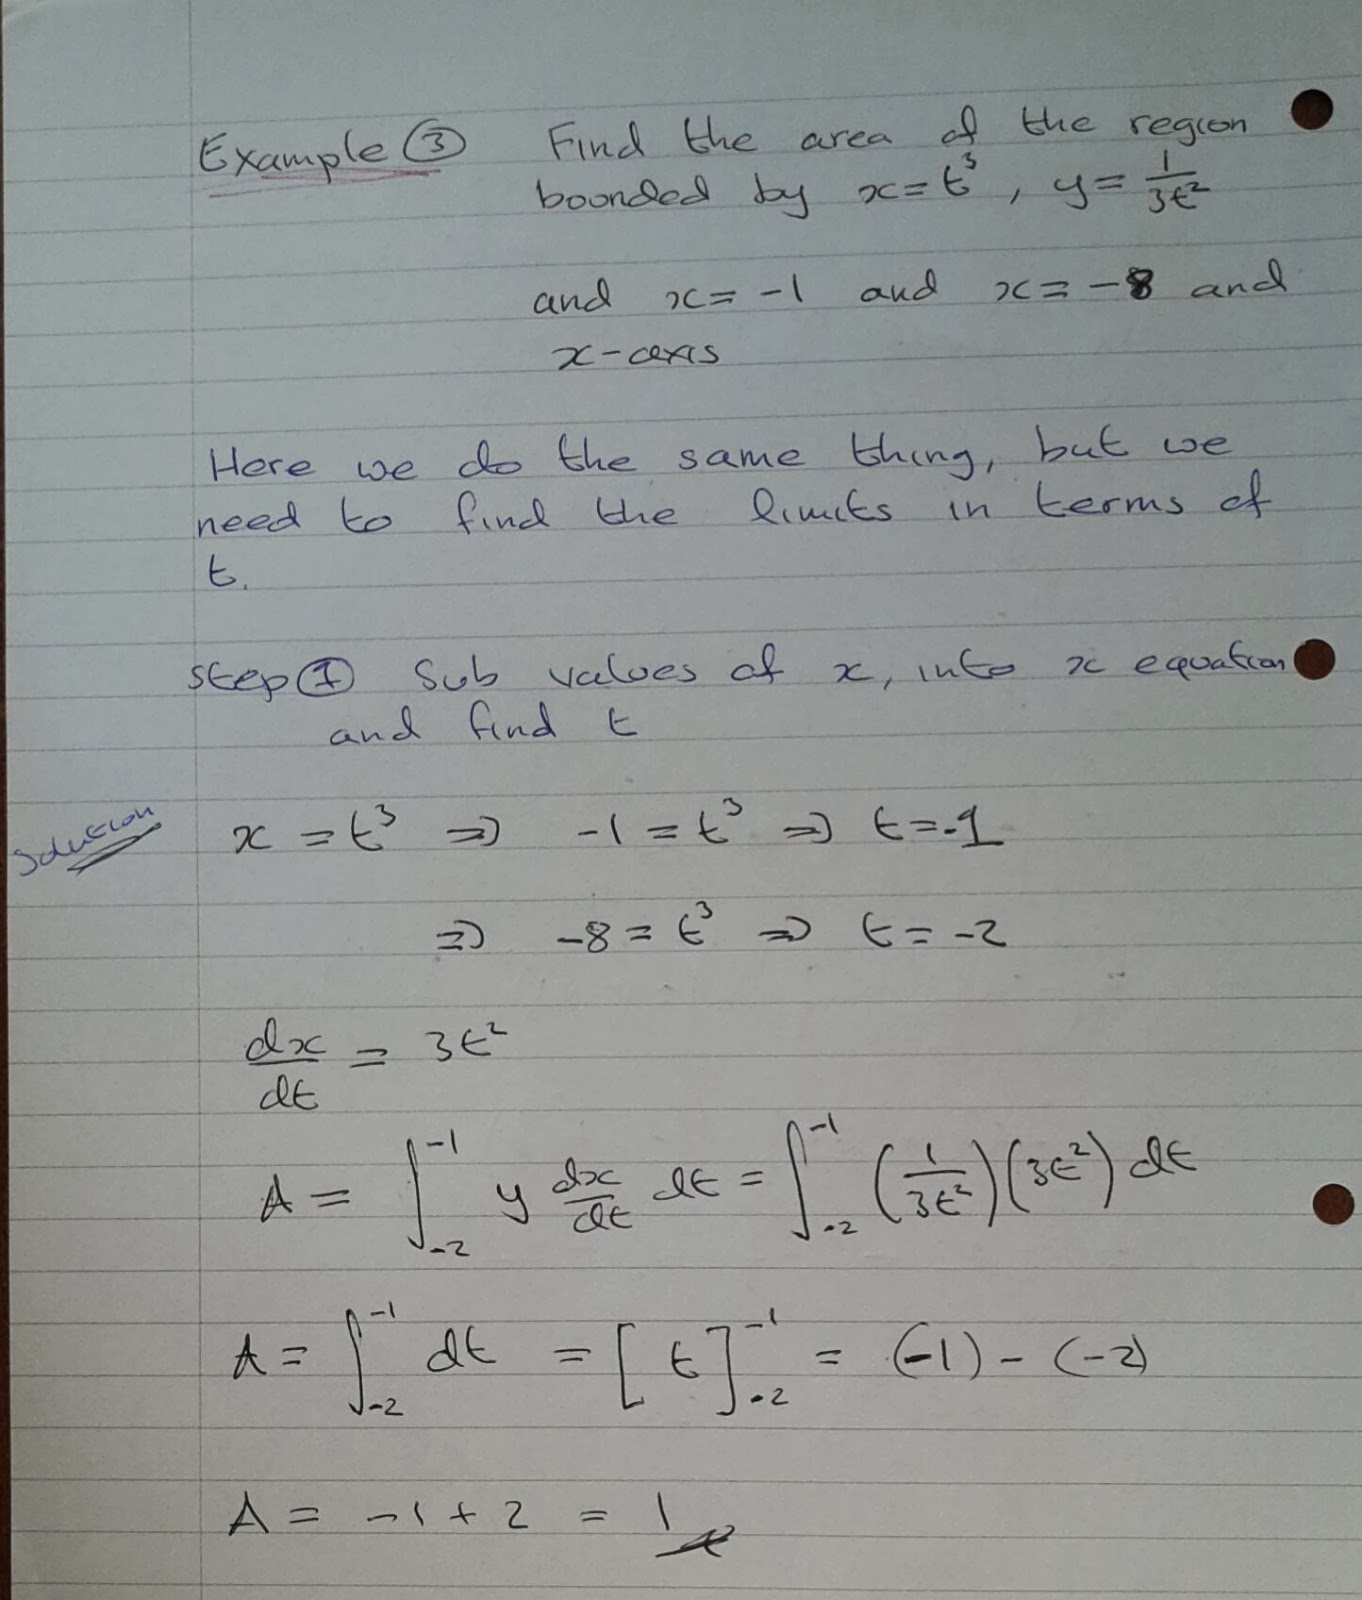 Example ③ Find the area of the region
bounded by x = t³, y = 1/3t²
and x = -1 and x = -8 and
x-axis
Here we do the same thing, but we
need to find the limits in terms of
t.
step ① Sub values of x, into x equation
and find t
Solution x = t³ ⇒ -1 = t³ ⇒ t = -1
⇒ -8 = t³ ⇒ t = -2
dx/dt = 3t²
A = ∫₋₂⁻¹ y dx/dt dt = ∫₋₂⁻¹ (1/3t²)(3t²) dt
A = ∫₋₂⁻¹ dt = [t]₋₂⁻¹ = (-1) - (-2)
A = -1 + 2 = 1